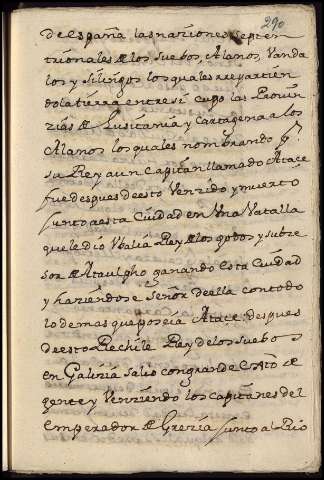 290
de españa las naziones septen
trionales de los suebos, Alanos, Vanda
los y silingos los quales repartien
do la tierra entre si cupo las Provin
zias de Lusitania y Cartagena a los
Alanos los quales nombrando p.r
su Rey a un Capitan llamado Atace
fue despues de esto Venzido y muerto
junto a esta Ciudad en Una Vatalla
que le dio Ubalia Rey de los godos y subze
sor de Ataulpho ganando esta Ciudad
y haziendose Señor de ella con todo
lo demas que poseia Atace, despues
de esto Rechile Rey de los suebos
en Galizia salio con grande de
gente y Venziendo los capitanes del
emperador de Grezia junto al Rio